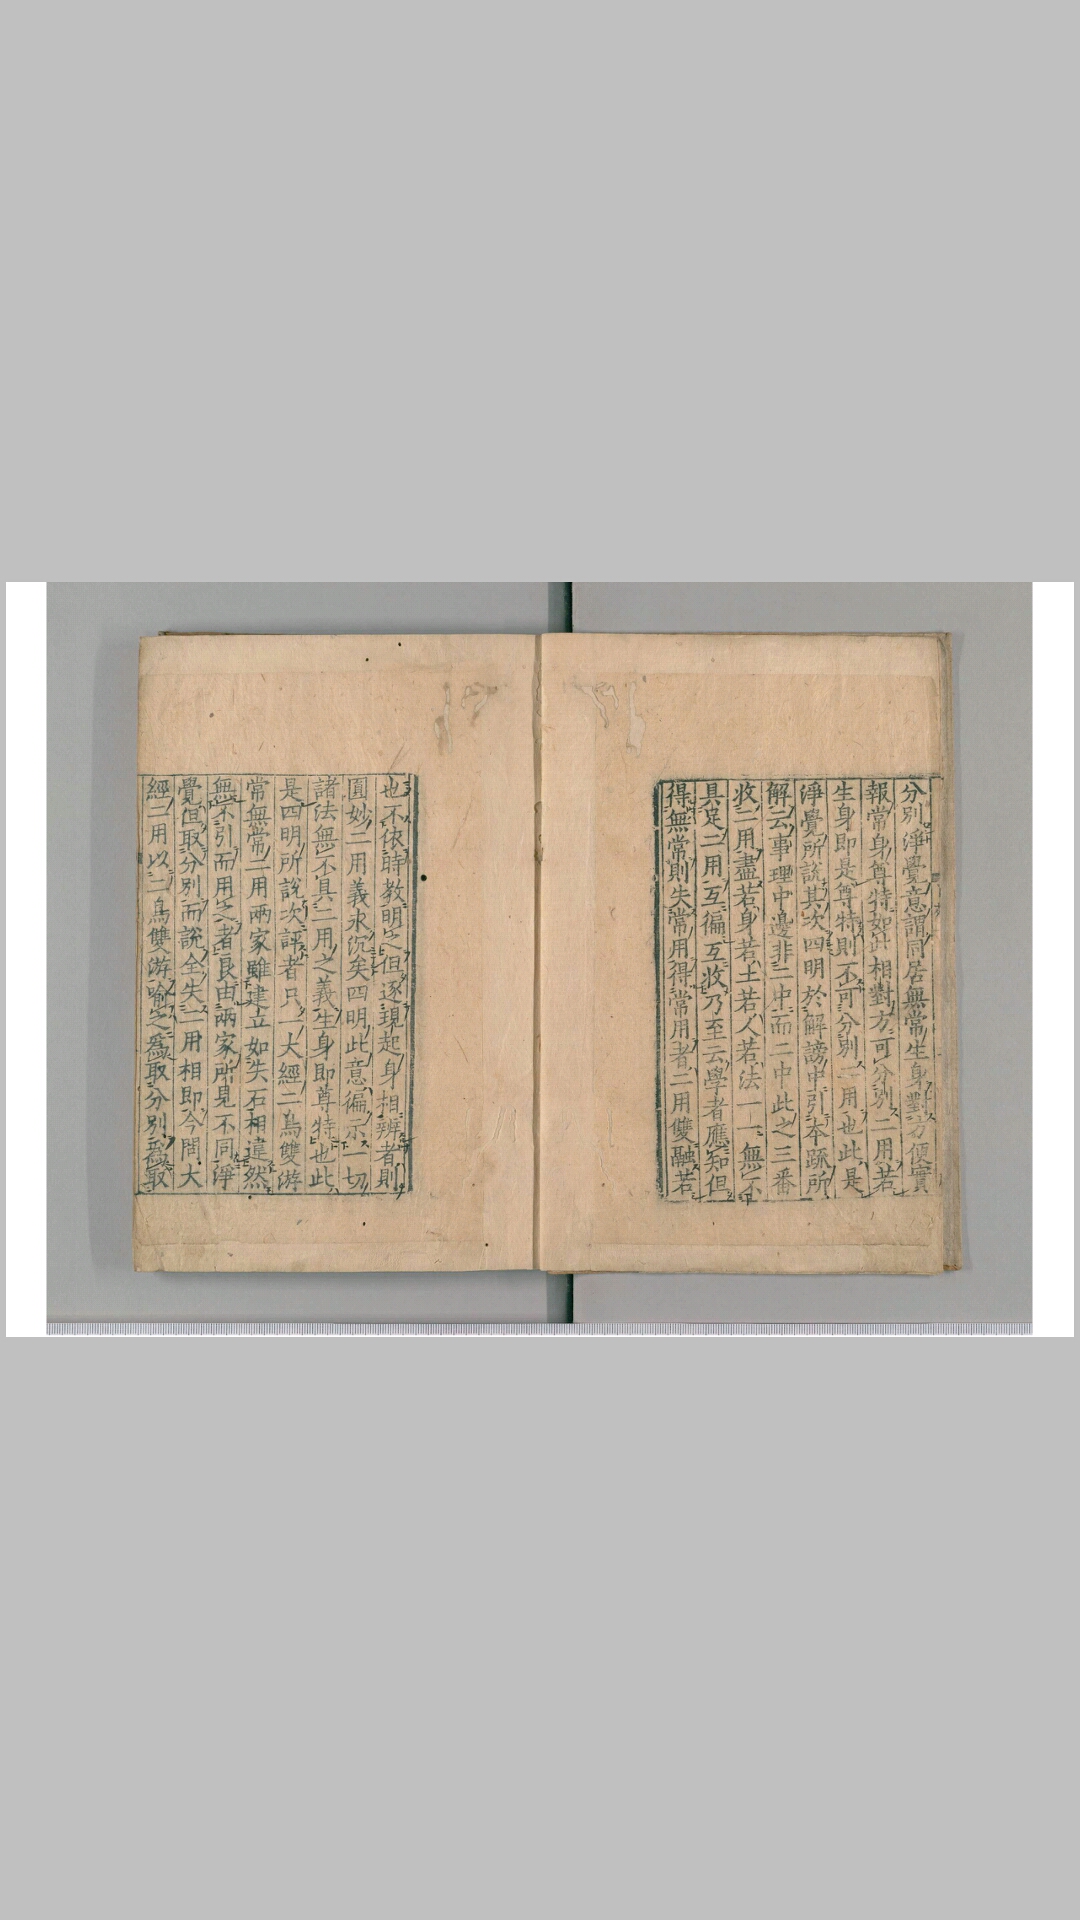 分別淨覺意謂同居無常生身對方便實
報常身尊特如此相對方可分別二用若
生身即是尊特則不可分別二用也此是
淨覺所說其次四明於解謗中引本䟽所
解云事理中邊非二中而二中此之三番
收二用盡若身若土若人若法一一無不
具足二用互徧互收乃至云學者應知但
得無常則失常用得常用者二用雙融若
也不依時教明之但逐現起身相辨者則
圓妙二用義永沉矣四明此意徧示一切
諸法無不具二用之義生身即尊特也此
是四明所說次評者只一大經二鳥雙游
常無常二用兩家雖建立如矢石相違然
無不引而用之者良由兩家所見不同淨
覺但取分別而說全失二用相即今問大
經二用以二鳥雙游喻之爲取分別爲取